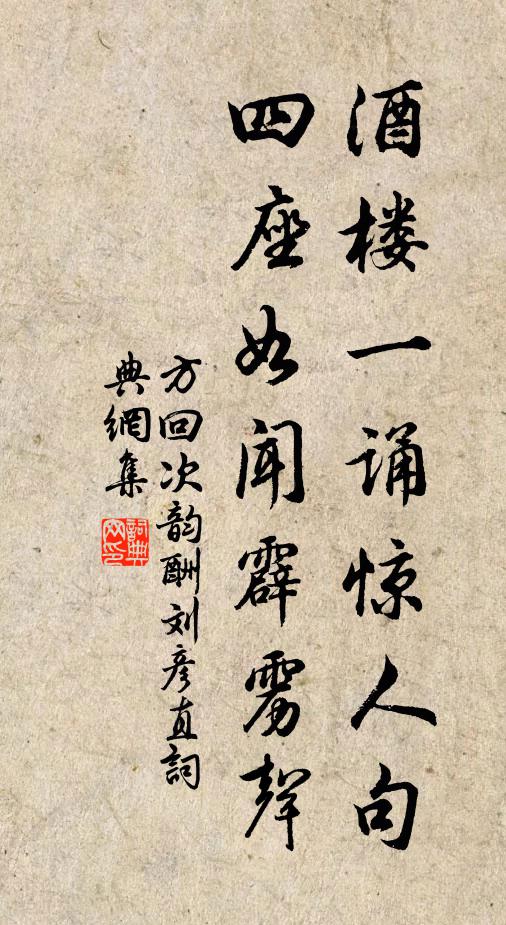 酒楼一诵惊人句
四座如闻霹雳聲
方回次韵酬刘彦直詞
典網集
詞典
网印